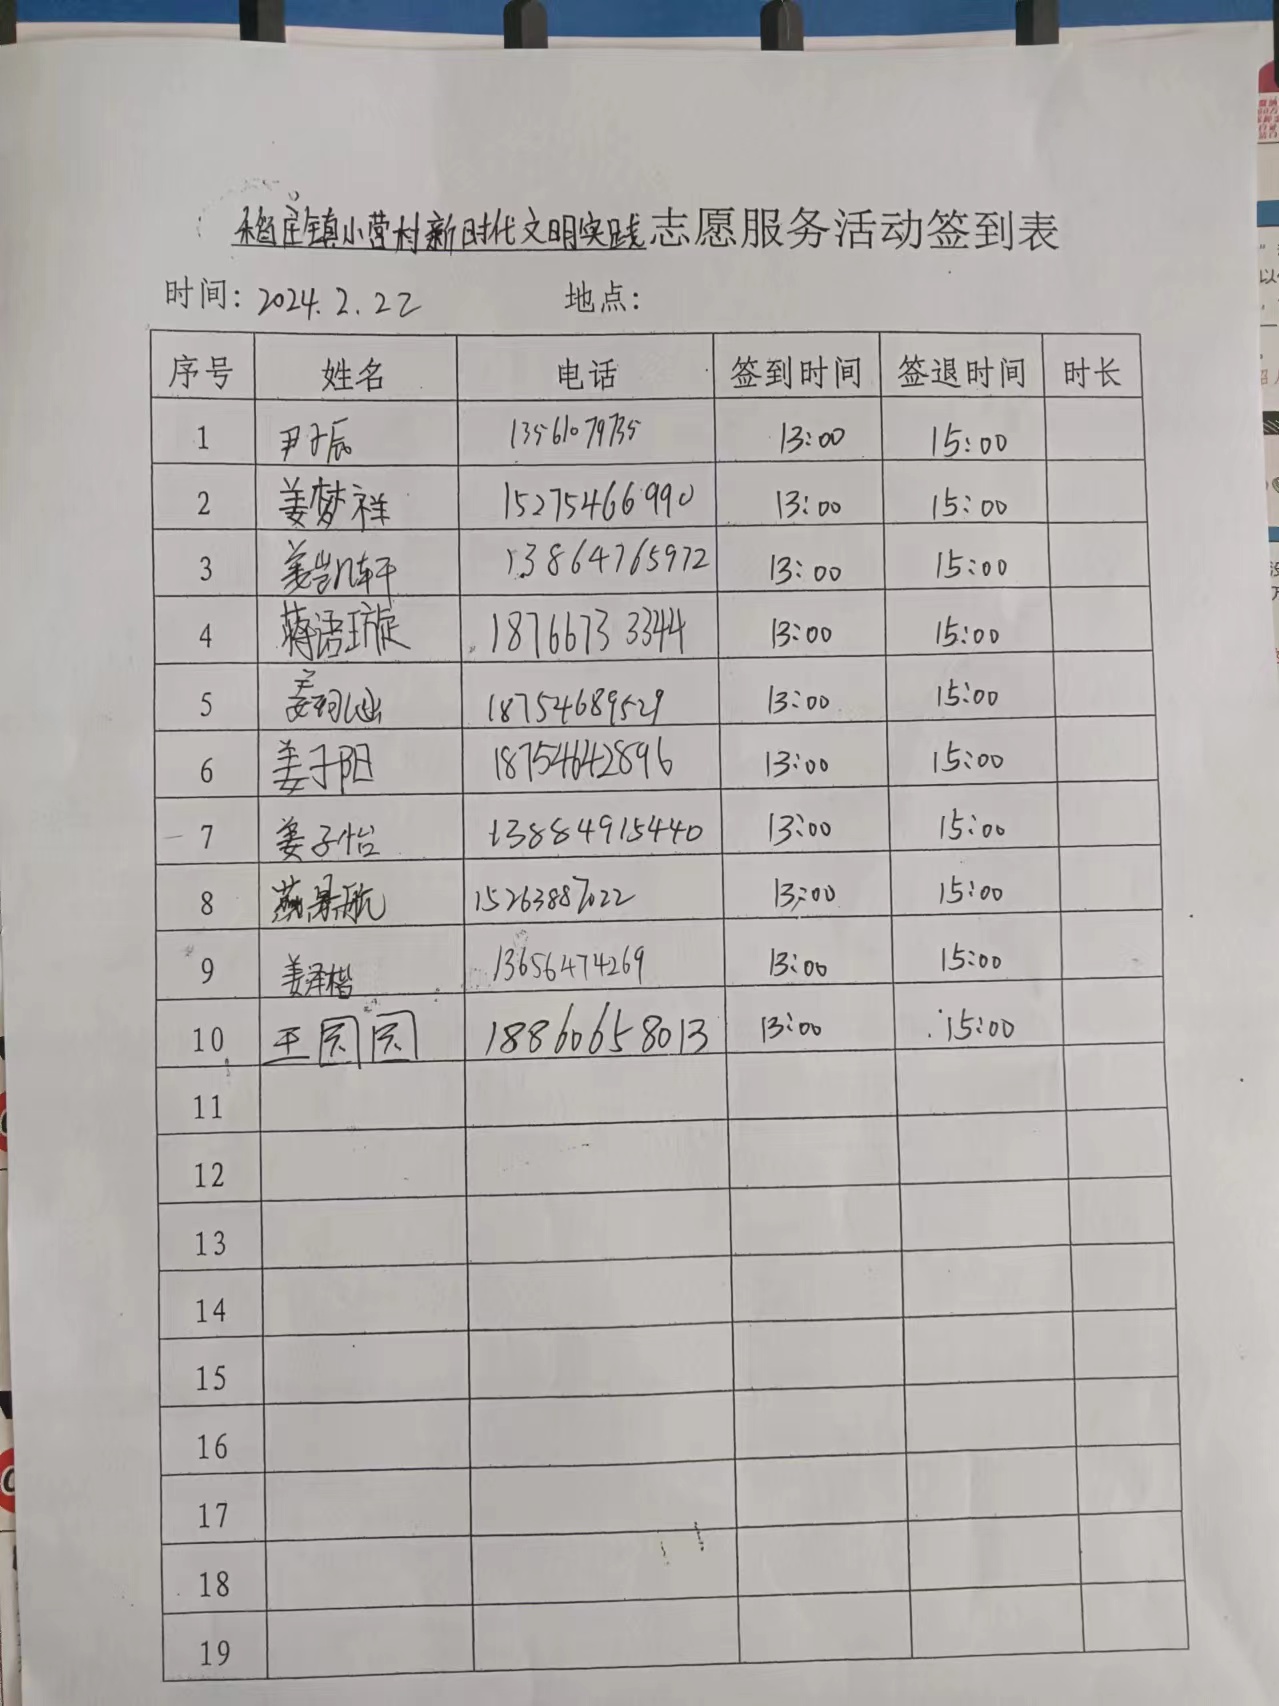 稻庄镇小营村新时代文明实践志愿服务活动签到表
时间: 2024.2.22 地点:
序号 姓名 电话 签到时间 签退时间 时长
1 尹子辰 13561079735 13:00 15:00
2 姜梦祥 15275466990 13:00 15:00
3 姜凯轩 13864765972 13:00 15:00
4 蒋语璇 18766733344 13:00 15:00
5 姜 18754689529 13:00 15:00
6 姜子阳 18754642896 13:00 15:00
7 姜子怡 13884915440 13:00 15:00
8 燕景航 15263887022 13:00 15:00
9 姜泽楷 13656474269 13:00 15:00
10 王园园 18860658013 13:00 15:00
11
12
13
14
15
16
17
18
19